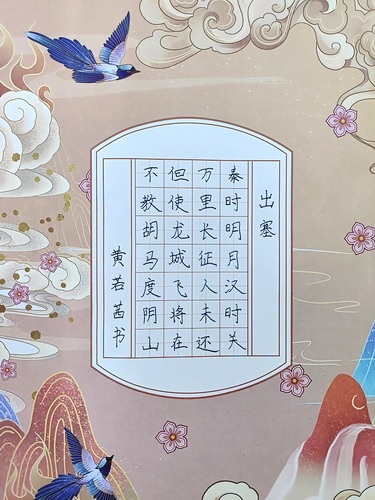 出塞
秦时明月汉时关
万里长征人未还
但使龙城飞将在
不教胡马度阴山
黄若茜书